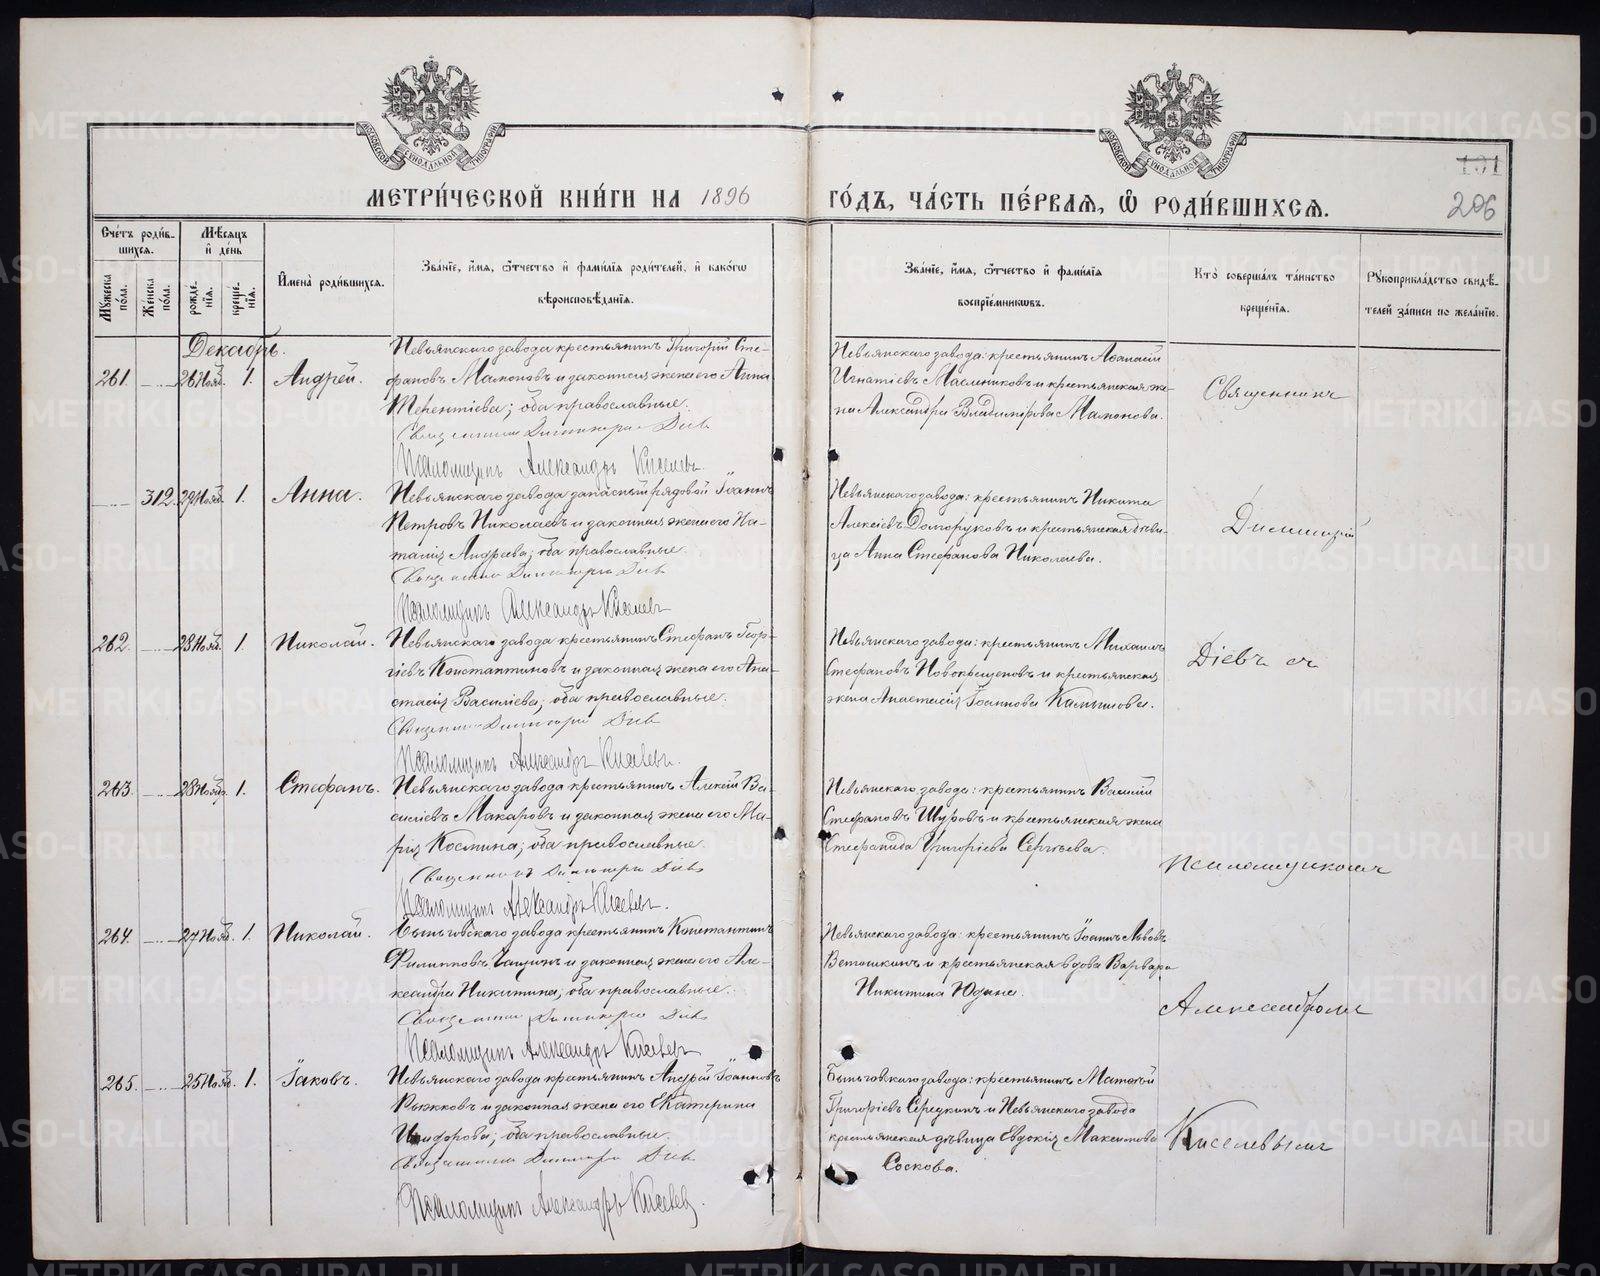 МОСКОВСКОЙ СѴНОДАЛЬНОЙ ТИПОГРАФІИ
МОСКОВСКОЙ СѴНОДАЛЬНОЙ ТИПОГРАФІИ
101
206
МЕТРИ́ЧЕСКОЙ КНИ́ГИ НА 1896
ГО́ДЪ, ЧА́СТЬ ПЕ́РВАЯ, Ѽ РОДИ́ВШИХСЯ.
Сче́тъ роди́в-
шихся.
Му́жеска по́ла.
Же́нска по́ла.
Мѣ́сяцъ
и́ де́нь
рожде-нїя.
креще-нїя.
И҆мена̀ роди́вшихся.
Зва́нїе, и́мя, ѻ҆́тчество и҆ фами́лїя роди́телей, и҆ како́гѡ
вѣроисповѣ́данїя.
Зва́нїе, и́мя, ѻ҆́тчество и҆ фами́лїя
воспрїе́мникѡвъ.
Кто̀ соверша́лъ та́инство
креще́нїя.
Рꙋкоприкла́дство свидѣ́-
телей за́писи по жела́нїю.
Декабрь.
261. 26 Нояб. 1. Андрей.
Невьянскаго завода крестьянинъ Григорій Сте-
фановъ Мамоновъ и законная жена его Анна
Терентіева; оба православные.
Священникъ Димитрій Діевъ
Псаломщикъ Александръ Киселевъ.
Невьянскаго завода: крестьянинъ Аѳанасій
Игнатіевъ Масленниковъ и крестьянская же-
на Александра Владимірова Мамонова.
Священникъ
312. 29 Нояб. 1. Анна.
Невьянскаго завода запасный рядовой Іоаннъ
Петровъ Николаевъ и законная жена его На-
талія Андреева; оба православные.
Священникъ Димитрій Діевъ
Псаломщикъ Александръ Киселевъ
Невьянскаго завода: крестьянинъ Никита
Алексіевъ Долгоруковъ и крестьянская дѣви-
ца Анна Стефанова Николаева.
Димитрій
262. 28 Нояб. 1. Николай.
Невьянскаго завода крестьянинъ Стефанъ Геор-
гіевъ Константиновъ и законная жена его Ана-
стасія Василіева; оба православные.
Священникъ Димитрій Діевъ
Псаломщикъ Александръ Киселевъ.
Невьянскаго завода: крестьянинъ Михаилъ
Стефановъ Новокрещеновъ и крестьянская
жена Анастасія Іоаннова Камышова.
Діевъ съ
263. 28 Нояб. 1. Стефанъ.
Невьянскаго завода крестьянинъ Алексій Ва-
силіевъ Макаровъ и законная жена его Ма-
рія Космина; оба православные.
Священникъ Димитрій Діевъ
Псаломщикъ Александръ Киселевъ.
Невьянскаго завода: крестьянинъ Василій
Стефановъ Шуровъ и крестьянская жена
Стефанида Григоріева Сергѣева.
Псаломщикомъ
264. 27 Нояб. 1. Николай.
Быньговскаго завода крестьянинъ Константинъ
Филипповъ и законная жена его Але-
ксандра Никитина; оба православные.
Священникъ Димитрій Діевъ
Псаломщикъ Александръ Киселевъ
Невьянскаго завода: крестьянинъ Іоаннъ Львовъ
Ветошкинъ и крестьянская вдова Варвара
Никитина Юдина.
Александромъ
265. 25 Нояб. 1. Іаковъ.
Невьянскаго завода крестьянинъ Андрей Іоанновъ
Рыжковъ и законная жена его Екатерина
оба православные.
Священникъ Димитрій Діевъ
Псаломщикъ Александръ Киселевъ.
Быньговскаго завода: крестьянинъ Матѳей
Григоріевъ Середкинъ и Невьянскаго завода
крестьянская дѣвица Евдокія Максимова
Соскова.
Киселевымъ
METRIKI.GASO-URAL.RU